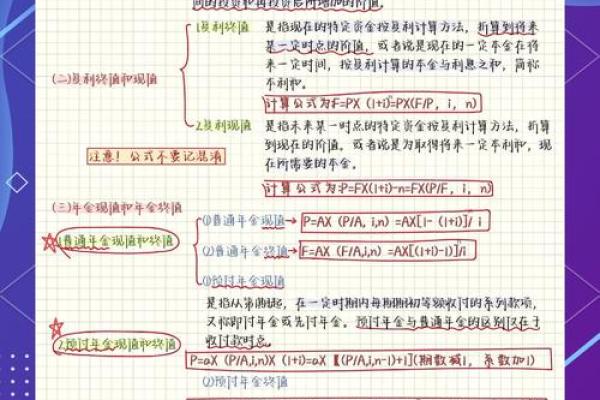 间的投资和再投资后所增加的价值。
1.复利终值 是指现在的特定资金按复利计算方法，折算到将来
是一定时点的价值，或者说是现在的一定本金在将
来一定时间，按复利计算的本金与利息之和，简称
本利和。
(二)复利终值和现值
计算公式为F=PX (1+i)=PX(F/P，i，n)
2.复利现值 是指未来某一时点的特定资金按复利计算方法，折算
到现在的价值，或者说是为取得将来一定本利和，现
在所需要的本金。
注意！公式不要记混淆
计算公式为:P=FX(1+i)-n=FX(P/F，i，n)
(三)年金现值和年金终值
(1)普通年金现值 P=AX (P/A，i,n) =AX[1- (1+i)]/ i
1.普通年金现值和终值
(2)普通年金终值 F=AX (F/A,i,n) =AX[(1+i)-1)]/i
(1)预付年金现值
是指从第期起，在一定时期内每期期初等额收付的系列款项，
又称即付年金或先付年金。预付年金与普通年金的区别仅在于
收付款时点。
2.预付年金现值和终值
P=aX (P/A,i,n)X (1+i)=aX【(P/A,i,n-1)+1](期数减1，系数加1)
(2)预付年金终值